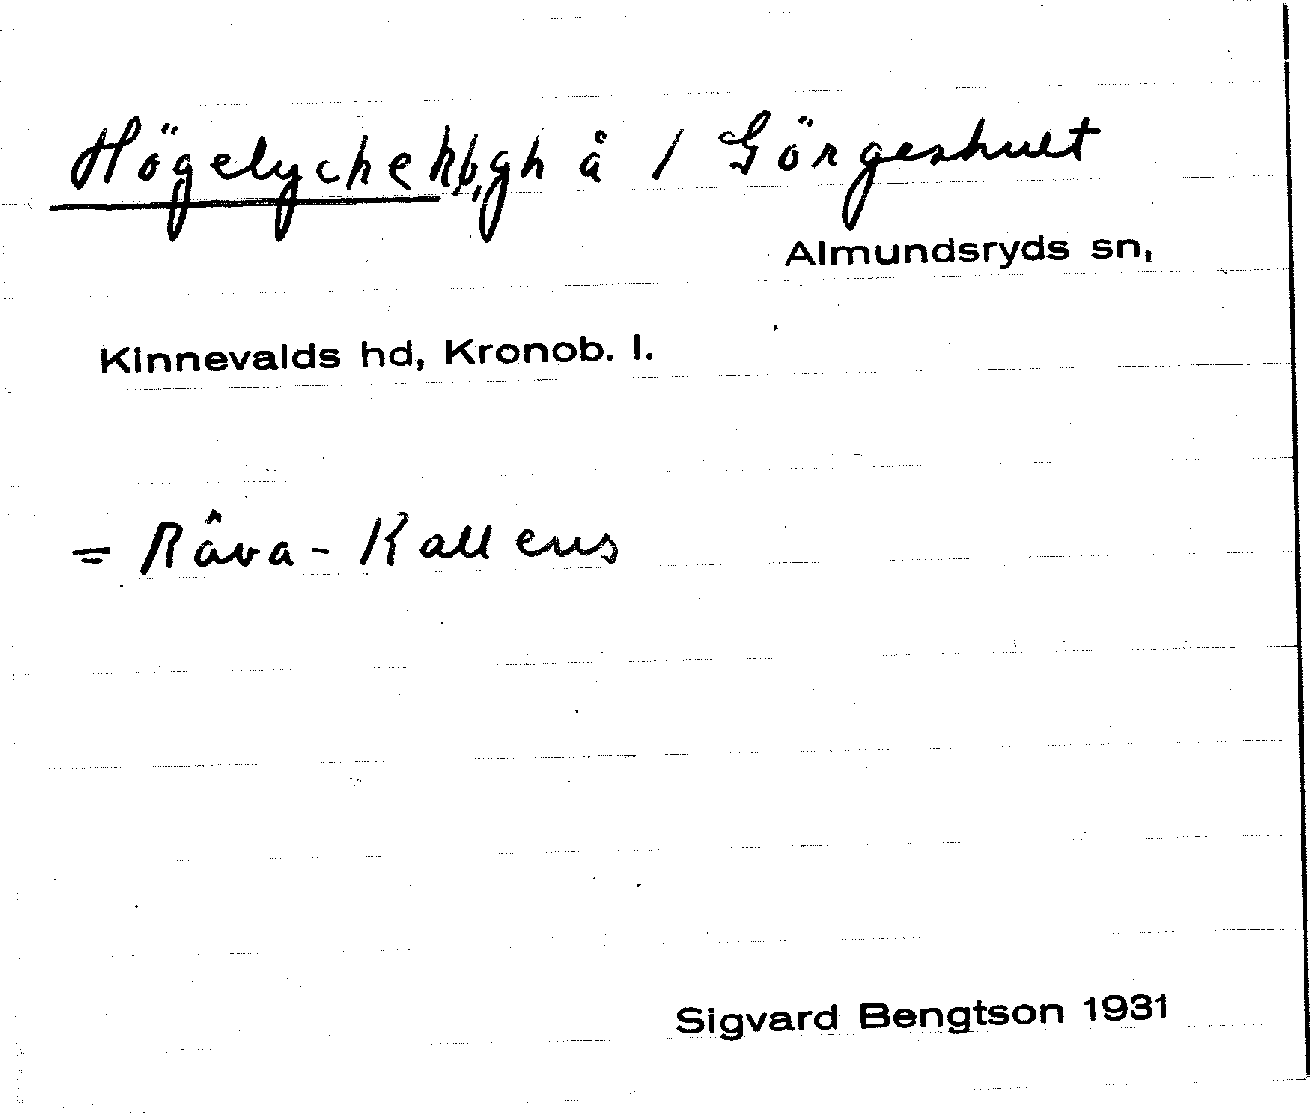 Högelyche kbgh å / Görgeshult
Almundsryds sn,
Kinnevalds hd, Kronob. l.
= Råva-Kallens
Sigvard Bengtson 1931